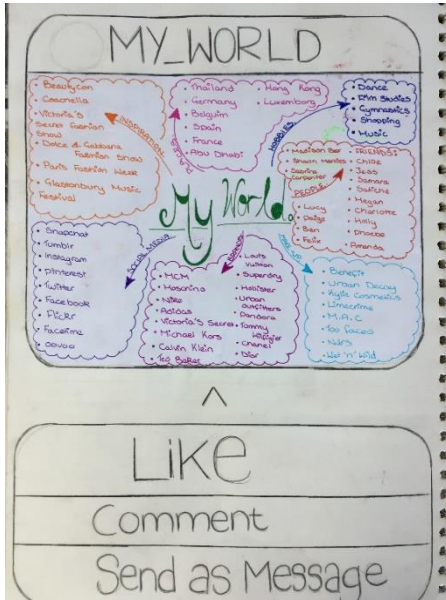 MY_WORLD
• Beautycon
• Coachella
• Victoria's
Secret Fashion
Show
• Dolce & Gabbana
Fashion Show
• Paris Fashion Week
• Glastonbury Music
Festival
INSPIRATION
• Thailand
• Germany
• Belguim
• Spain
• France
• Abu Dhabi
• Hong Kong
• Luxembourg
PLACES
• Dance
• Film Studies
• Gymnastics
• Shopping
• Music
HOBBIES
• Madison Beer
• Shawn Mendes
• Sabrina
Carpenter
PEOPLE
• Lucy
• Paige
• Ben
• Felix
• FRIENDS:
• Chloe
• Jess
• Samara
• Megan
• Charlotte
• Holly
• Phoebe
• Amanda
My World.
• Snapchat
• Tumblr
• Instagram
• Pinterest
• Twitter
• Facebook
• Flickr
• Facetime
• oovoo
SOCIAL MEDIA
• MCM
• Moschino
• Nike
• Adidas
• Victoria's Secret
• Michael Kors
• Calvin Klein
• Ted Baker
• Louis
Vuitton
• Superdry
• Hollister
• Urban
outfitters
• Pandora
• Tommy
Hilfiger
• Chanel
• Dior
BRANDS
• Benefit
• Urban Decay
• Kylie Cosmetics
• Limecrime
• M.A.C
• Too faced
• Nars
• Wet 'n' Wild
MAKE-UP
Like
Comment
Send as Message